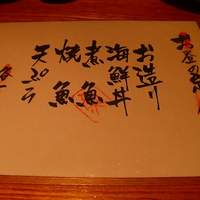 お昼の
お造り
海鮮丼
煮魚
焼魚
天ぷら